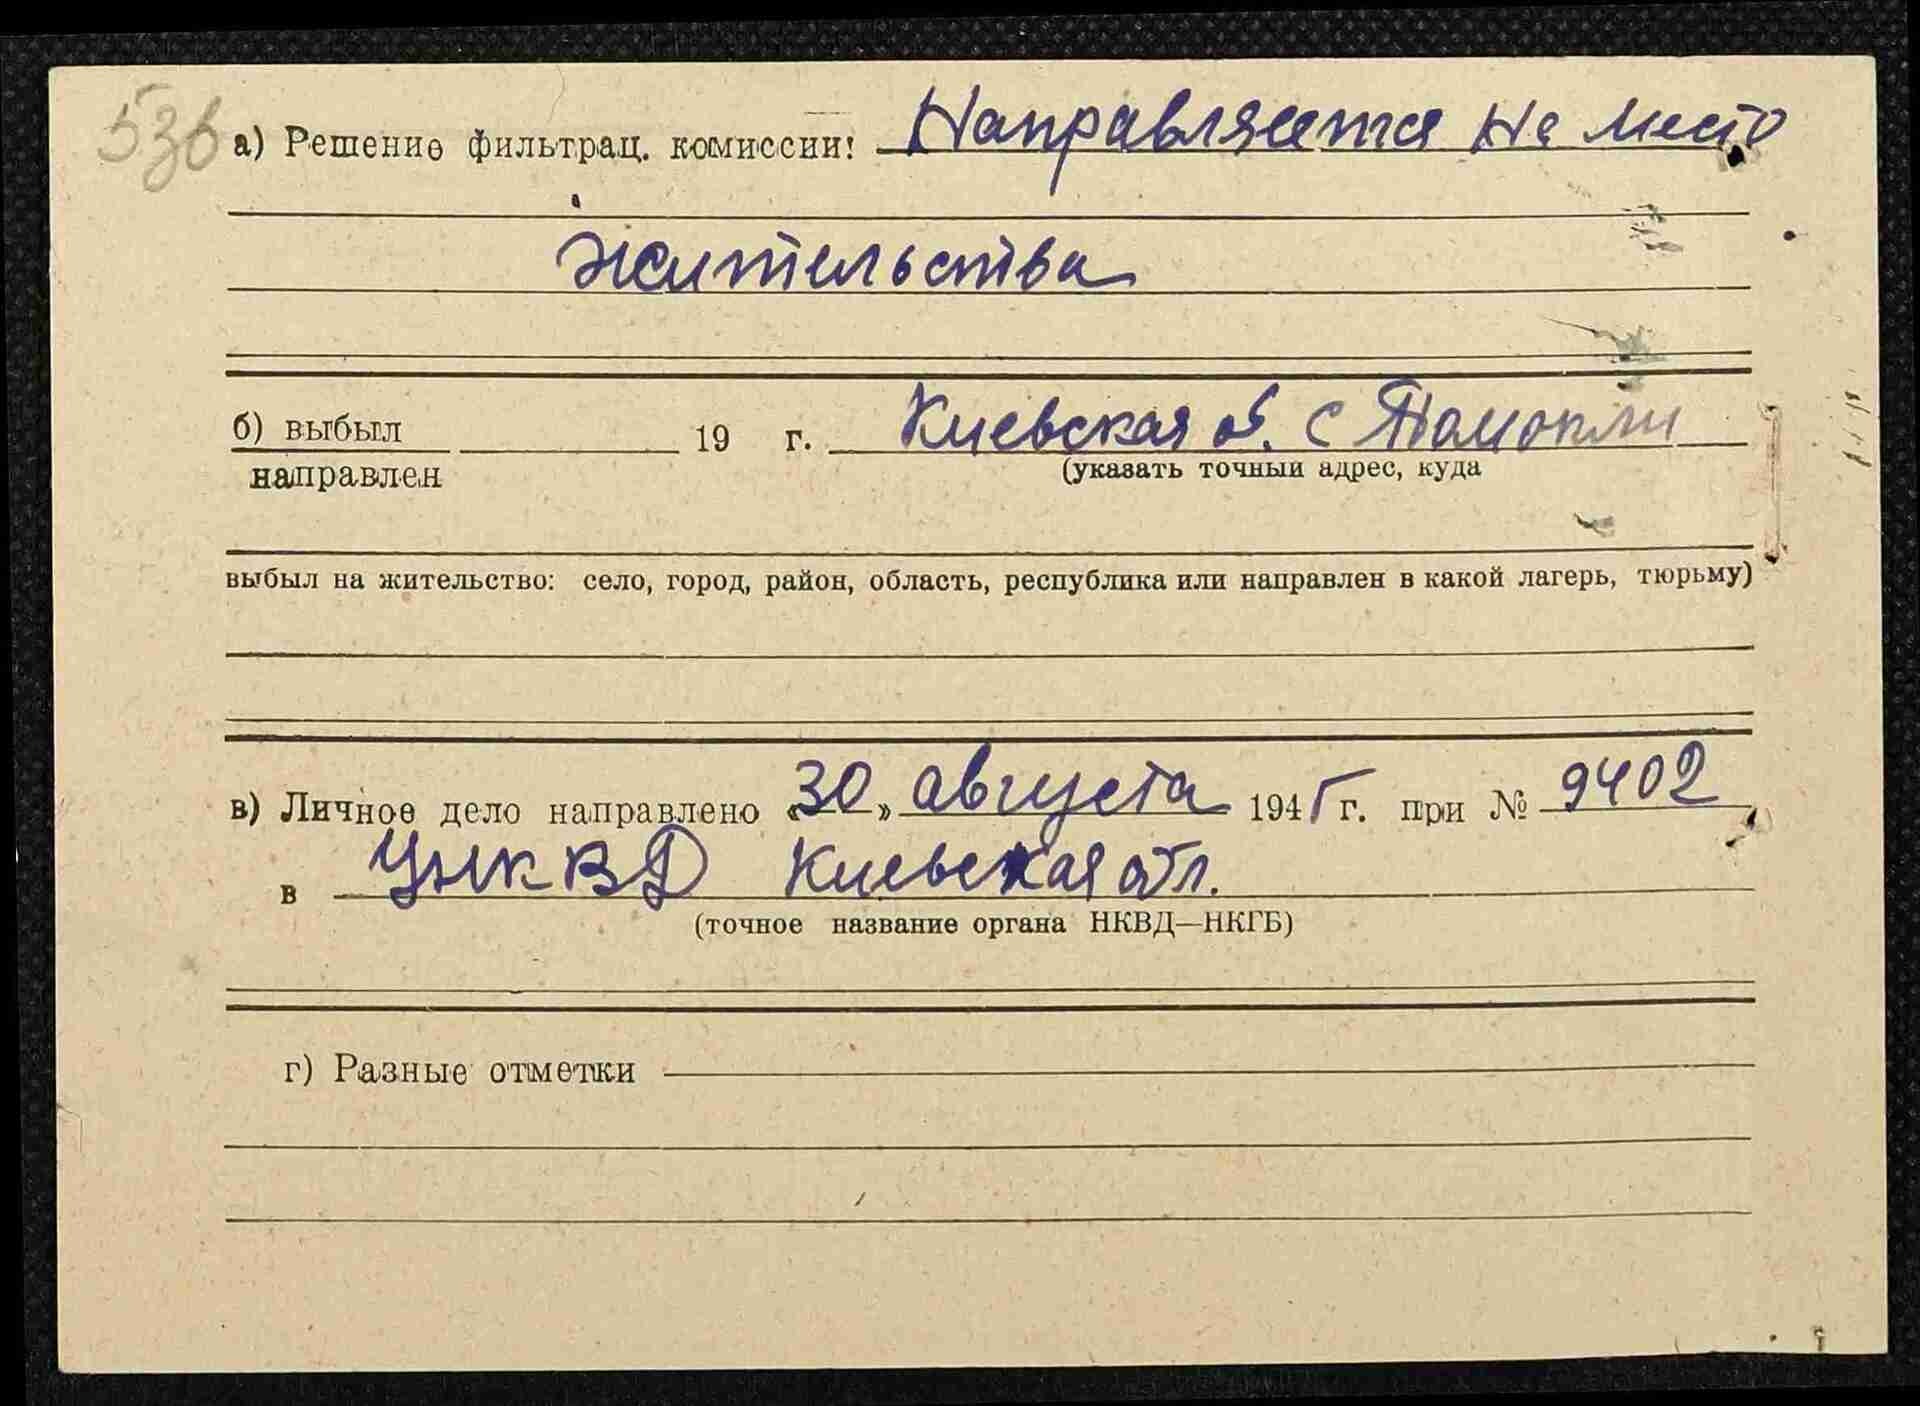 536
а) Решение фильтрац. комиссии: Направляется на место
жительства
б) выбыл 19 г. Киевская об. с
направлен
(указать точный адрес, куда
выбыл на жительство: село, город, район, область, республика или направлен в какой лагерь, тюрьму)
в) Личное дело направлено «30» августа 1945 г. при № 9402
в УНКВД Киевская обл.
(точное название органа НКВД—НКГБ)
г) Разные отметки